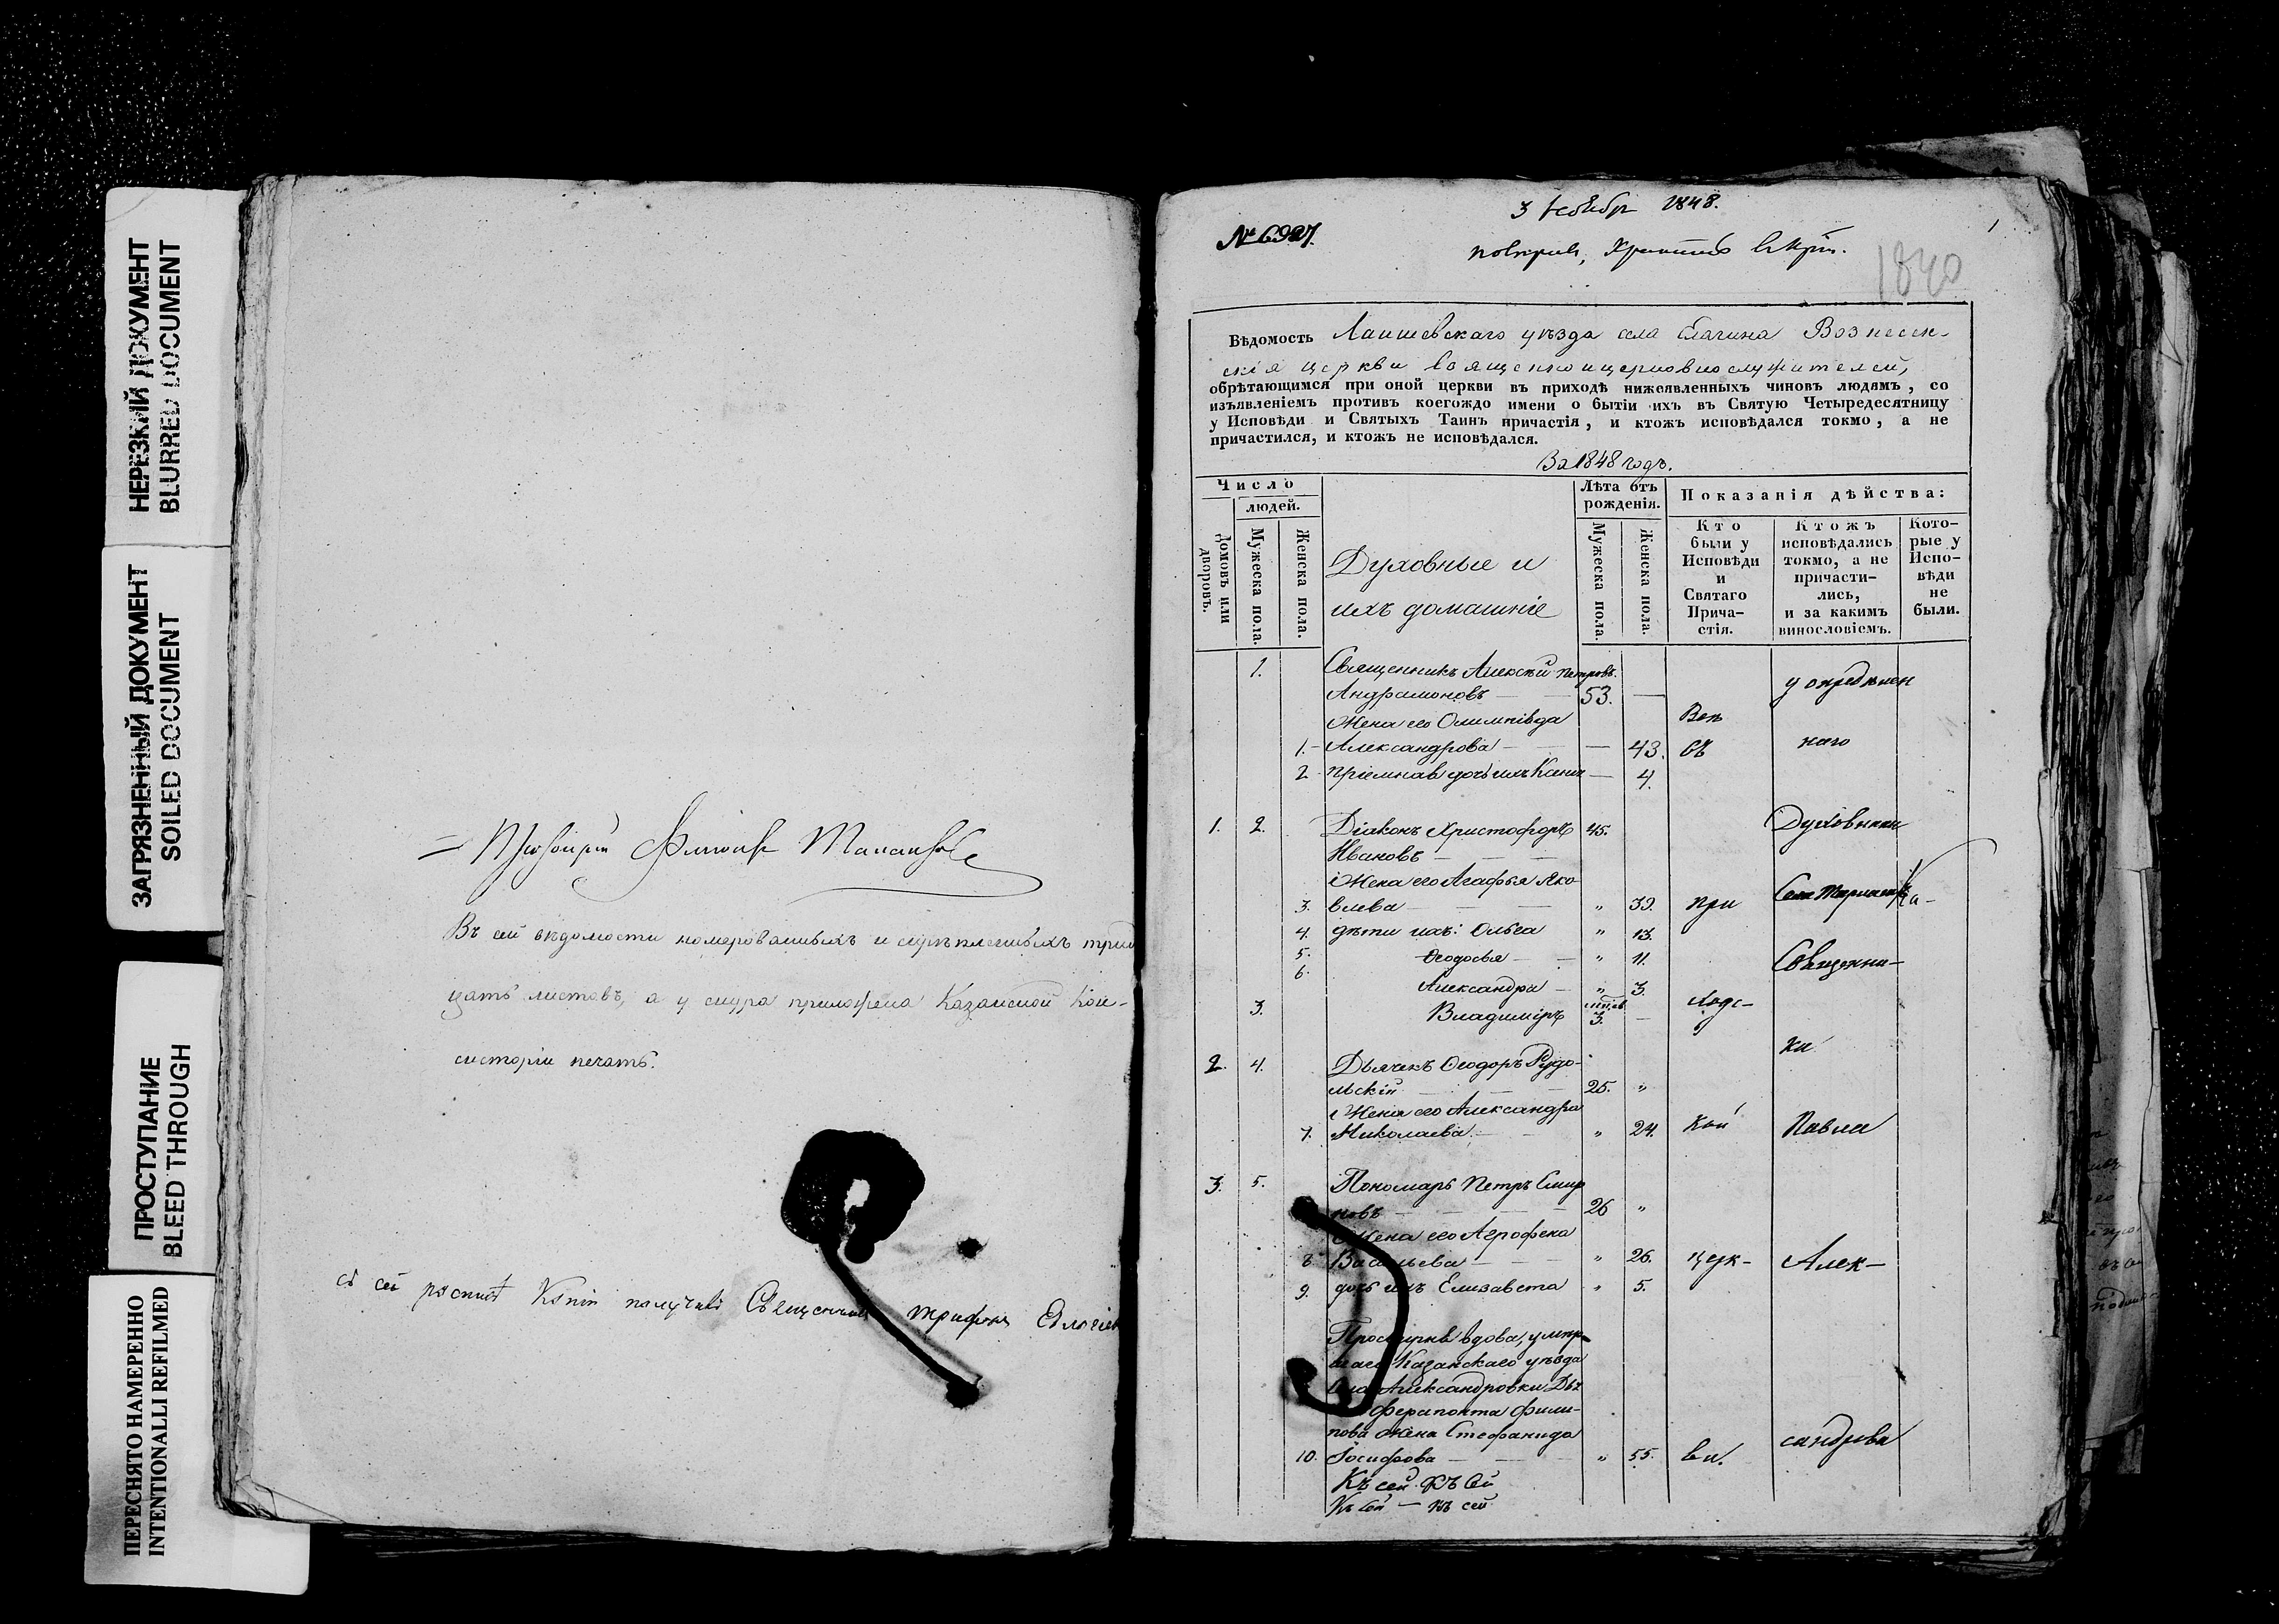 НЕРЕЗКИЙ ДОКУМЕНТ
BLURRED DOCUMENT
ЗАГРЯЗНЕННЫЙ ДОКУМЕНТ
SOILED DOCUMENT
ПРОСТУПАНИЕ
BLEED THROUGH
ПЕРЕСНЯТО НАМЕРЕННО
INTENTIONALLI REFILMED
Въ сей вѣдомости номерованныхъ и скрѣпленныхъ трид
цать листовъ, а у снура приложена Казанской Кон-
систоріи печать.
съ сей росписи Копію получилъ Священникъ Трифонъ
3 1848.
№ 6927.
1
1840
Вѣдомость Лаишевскаго уѣзда села Елагина Вознесен-
скія церкви священноицерковнослужителей,
обрѣтающимся при оной церкви въ приходѣ нижеявленныхъ чиновъ людямъ, со
изъявленіемъ противъ коегождо имени о бытіи ихъ въ Святую Четыредесятницу
у Исповѣди и Святыхъ Таинъ причастія, и ктожъ исповѣдался токмо, а не
причастился, и ктожъ не исповѣдался.
За 1848 годъ.
Число
людей.
Домовъ или дворовъ.
Мужеска пола.
Женска пола.
Духовные и
ихъ домашніе
Лѣта отъ
рожденія.
Мужеска пола.
Женска пола.
Показанія дѣйства:
Кто
были у
Исповѣди
и
Святаго
Прича-
стія.
Ктожъ
исповѣдались
токмо, а не
причасти-
лись,
и за какимъ
винословіемъ.
Кото-
рые у
Испо-
вѣди
не
были.
1. Священникъ Алексѣй Петровъ
Андрамоновъ — 53. —
у опредѣлен
Жена его Олимпіада
Всѣ
1. Александрова — — 43. съ наго
2 пріемная дочь ихъ Ксенія — 4.
1. 2. Діаконъ Христофоръ 45. Духовника
Ивановъ —
Жена его Агафья Яко
3. влева — " 39. при Села
4. дѣти ихъ: Ольга " 13.
5. Ѳеодосья — " 11. Священни-
6.
Александра — " 3.
3. Владиміръ 3. — ходс-
ка
2. 4. Дьячекъ Ѳеодоръ Рудо-
льскій — 25. "
Жена его Александра
7. Николаева. — " 24. кой Павла
3. 5. Пономарь Петръ Смир
новъ — 26 "
Жена его Агрофена
8 Васильева — " 26. церк- Алек-
9. дочь ихъ Елизавета " 5.
Просвирня вдова, умер-
шаго Казанскаго уѣзда
села Александровки
Ферапонта Фили-
пова жена Стефанида
10. Іосифова — " 55. ви. сандрова
Къ сей Къ сей
Къ сей — къ сей